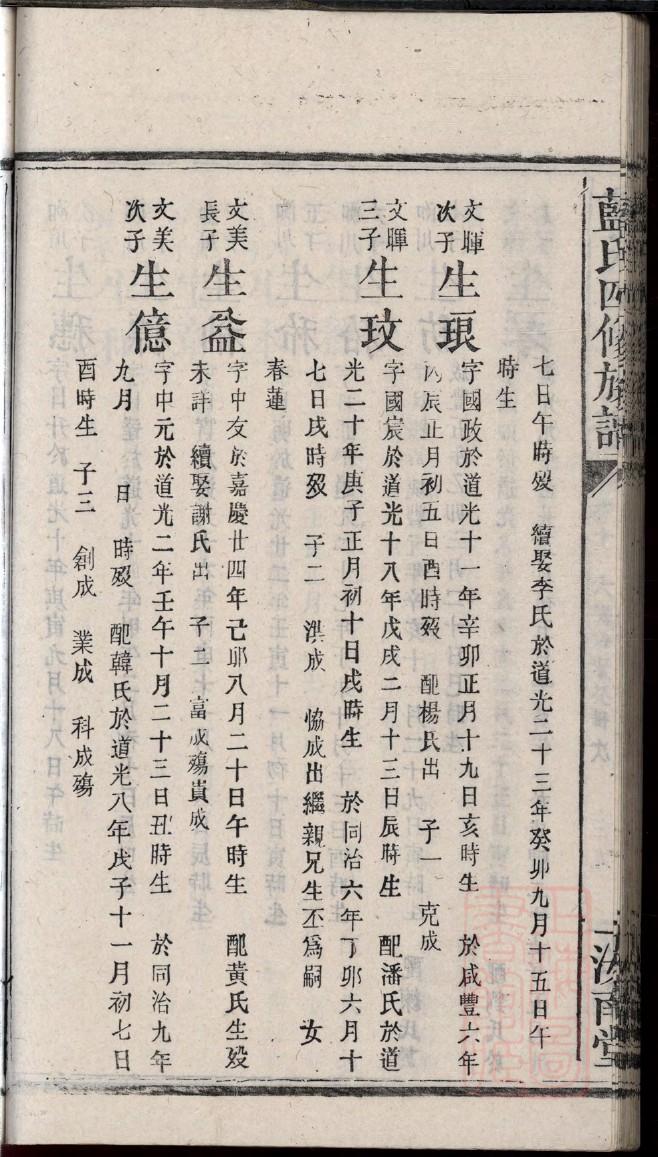 藍氏四修族譜
汝南堂
七日午時歿 續娶李氏於道光二十三年癸卯九月十五日午
時生
文暉次子 生琅 字國政於道光十一年辛卯正月十九日亥時生 於咸豐六年
丙辰正月初五日酉時歿 配楊氏出 子一 克成
文暉三子 生玟 字國宸於道光十八年戊戌二月十三日辰時生 配潘氏於道
光二十年庚子正月初十日戌時生 於同治六年丁卯六月十
七日戌時歿 子二 淇成 恊成出繼親兄生丕為嗣 女
春蓮
文美長子 生益 字中友於嘉慶廿四年己卯八月二十日午時生 配黃氏生歿
未詳 續娶謝氏出 子二 富成殤貴成
文美次子 生億 字中元於道光二年壬午十月二十三日丑時生 於同治九年
九月 日 時歿 配韓氏於道光八年戊子十一月初七日
酉時生 子三 創成 業成 科成殤